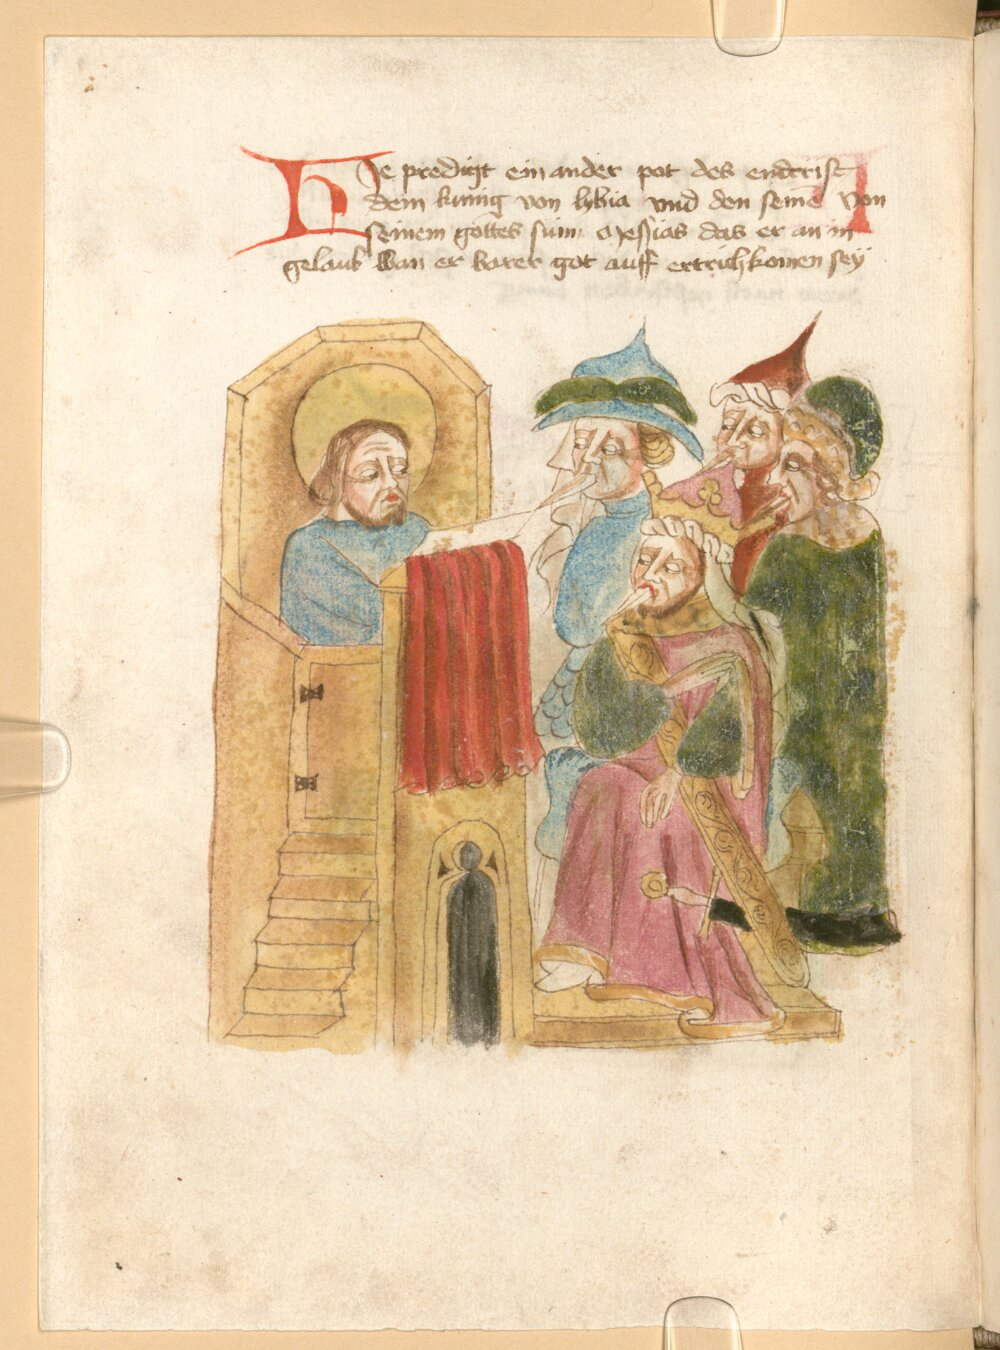 Hie predigt ein ander pot des endcrist
dem kunig von lybia vnd den seinē von
seinem gottes sun messias das er an in
gelaub wan er warer got auff ertrich komen sey